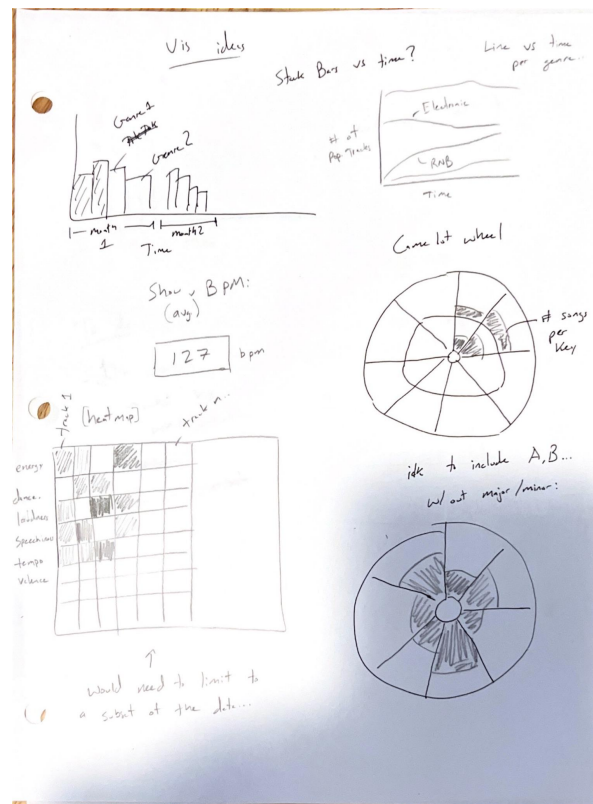 Vis ideas
Stack Bars vs time?
Line vs time
per genre...
Genre 1
Genre 2
month
1
month 2
Time
# of
Pop. Tracks
Electronic
RNB
Time
Show BPM:
(avg)
127 bpm
Camelot wheel
# songs
per
Key
Track 1
[heat map]
track n...
energy
dance.
loudness
speechiness
tempo
valence
idk to include A,B...
w/out major/minor:
would need to limit to
a subset of the data...